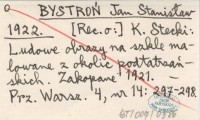 BYSTROŃ Jan Stanisław
1922. [Rec. o:] K. Stecki:
Ludowe obrazy na szkle ma-
lowane z okolic podtatrzań-
skich. Zakopane 1921. -
Prz. Warsz. 4, nr 14: 297-298.